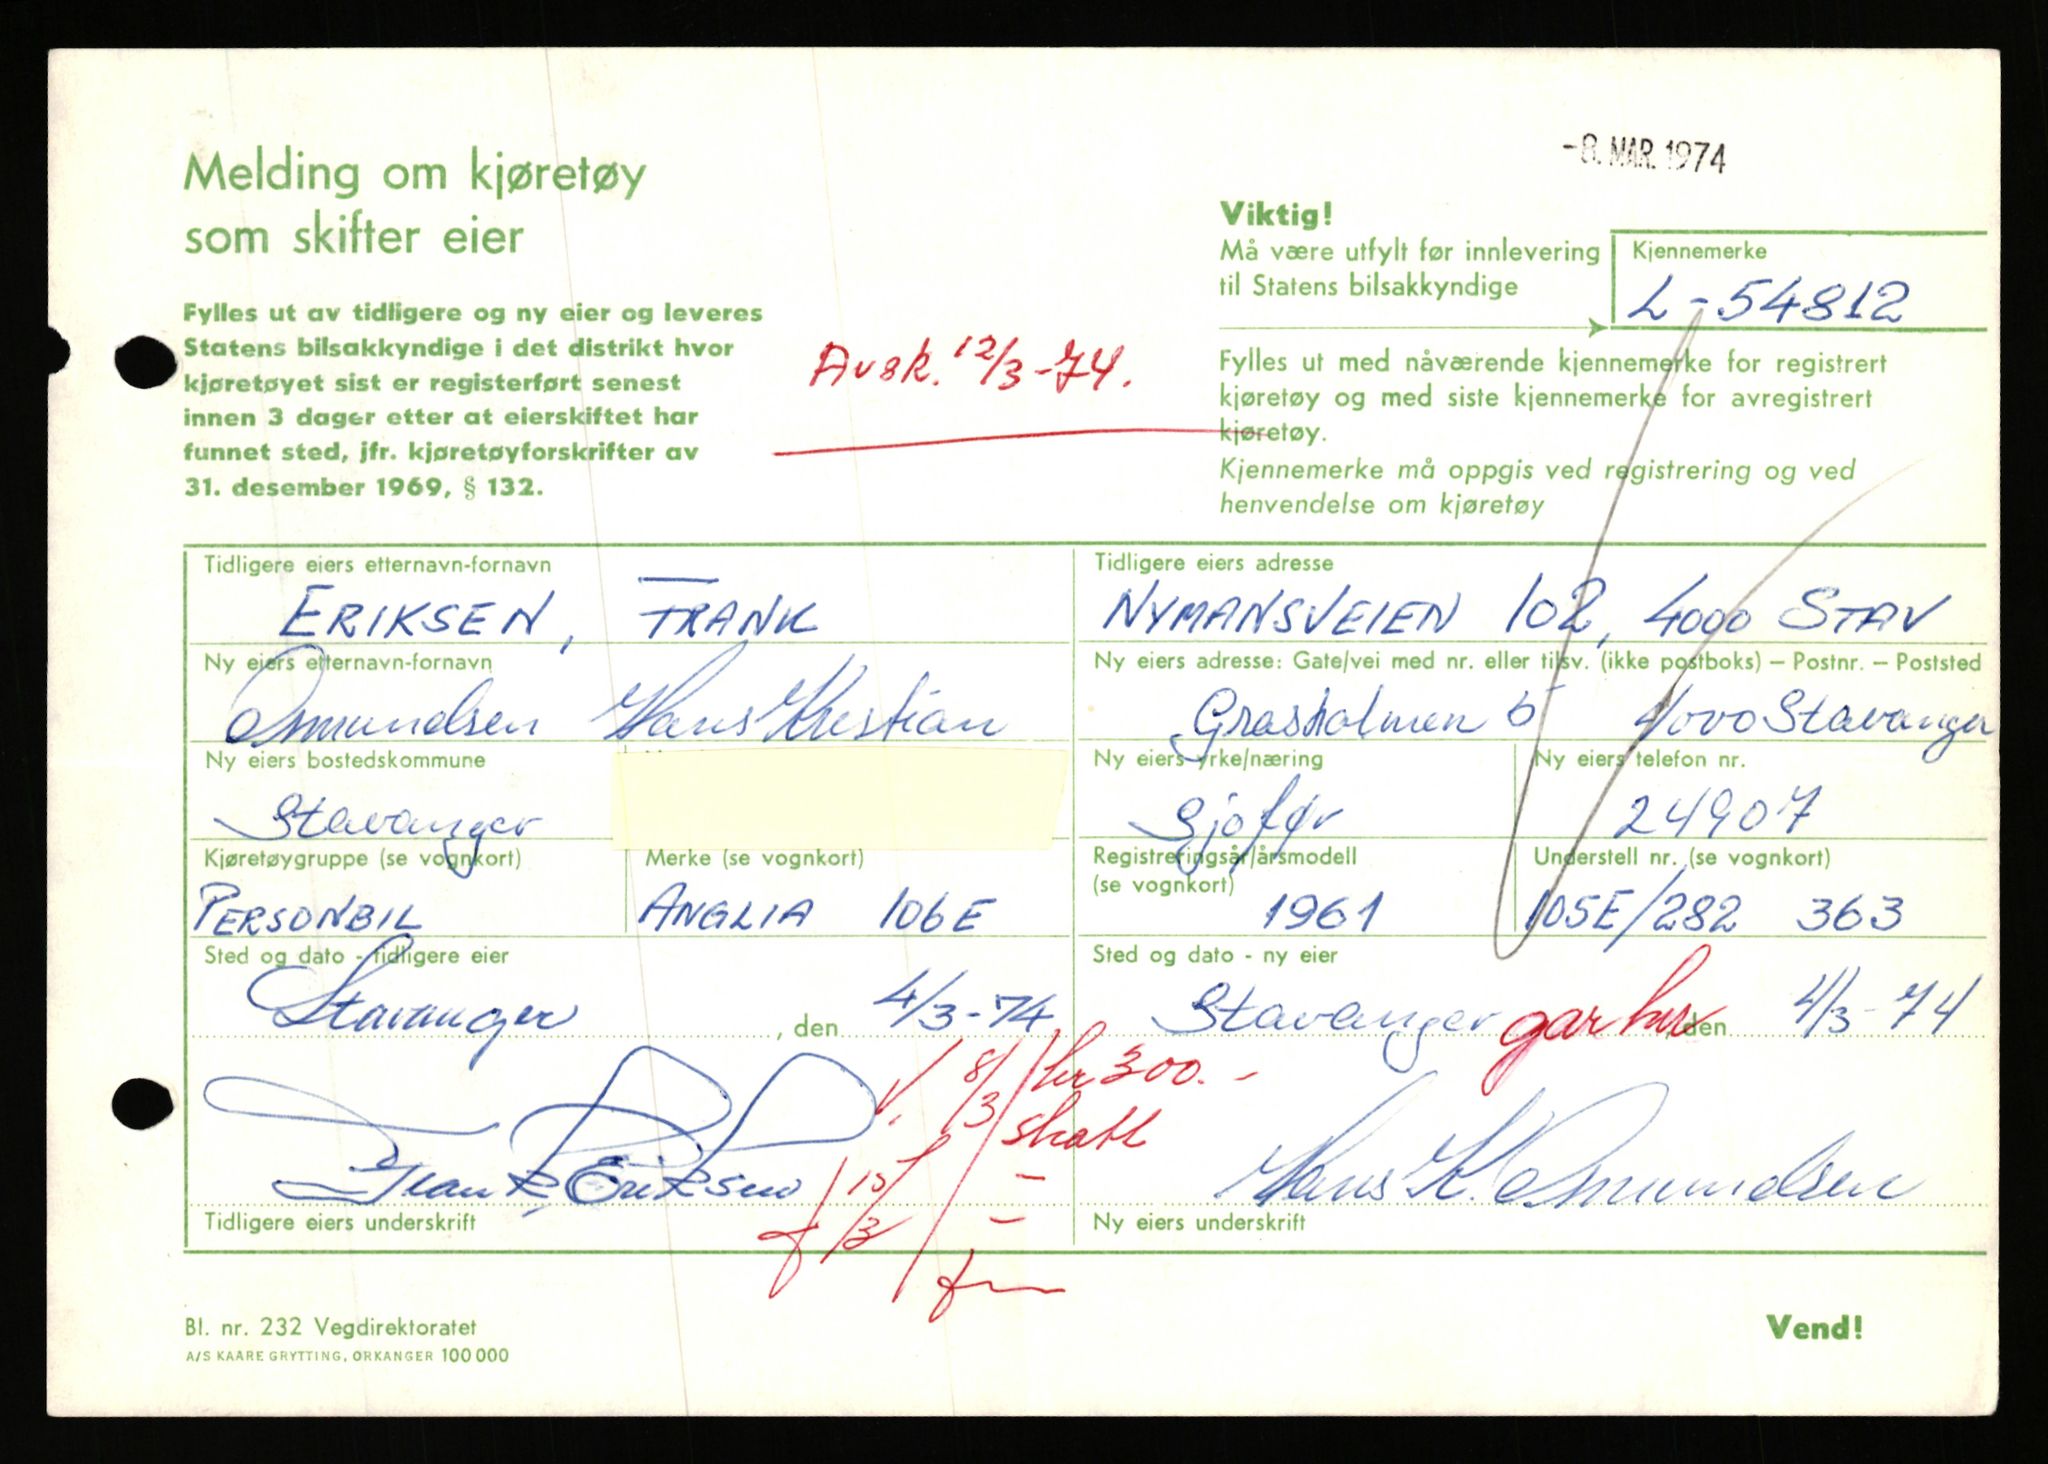 -8. MAR. 1974
Melding om kjøretøy
som skifter eier
Fylles ut av tidligere og ny eier og leveres
Statens bilsakkyndige i det distrikt hvor
kjøretøyet sist er registerført senest
innen 3 dager etter at eierskiftet har
funnet sted, jfr. kjøretøyforskrifter av
31. desember 1969, § 132.
Avsk. 12/3-74.
Viktig!
Må være utfylt før innlevering
til Statens bilsakkyndige
Kjennemerke
L-54812
Fylles ut med nåværende kjennemerke for registrert
kjøretøy og med siste kjennemerke for avregistrert
kjøretøy.
Kjennemerke må oppgis ved registrering og ved
henvendelse om kjøretøy
Tidligere eiers etternavn-fornavn
ERIKSEN, FRANK
Tidligere eiers adresse
NYMANSVEIEN 102, 4000 STAV
Ny eiers etternavn-fornavn
Osmundsen Hans Kristian
Ny eiers adresse: Gate/vei med nr. eller tilsv. (ikke postboks) – Postnr. – Poststed
Grasholmen 5 4000 Stavanger
Ny eiers bostedskommune
Stavanger
Ny eiers yrke/næring
Sjofør
Ny eiers telefon nr.
24907
Kjøretøygruppe (se vognkort)
PERSONBIL
Merke (se vognkort)
ANGLIA 106E
Registreringsår/årsmodell
(se vognkort)
1961
Understell nr. (se vognkort)
105E/282 363
Sted og dato - tidligere eier
Stavanger, den 4/3-74
Sted og dato - ny eier
Stavanger, den 4/3-74
8/3 kr 300.-
skatt
10/3
Frank Eriksen
Tidligere eiers underskrift
Hans K. Osmundsen
Ny eiers underskrift
Bl. nr. 232 Vegdirektoratet
A/S KAARE GRYTTING, ORKANGER 100 000
Vend!